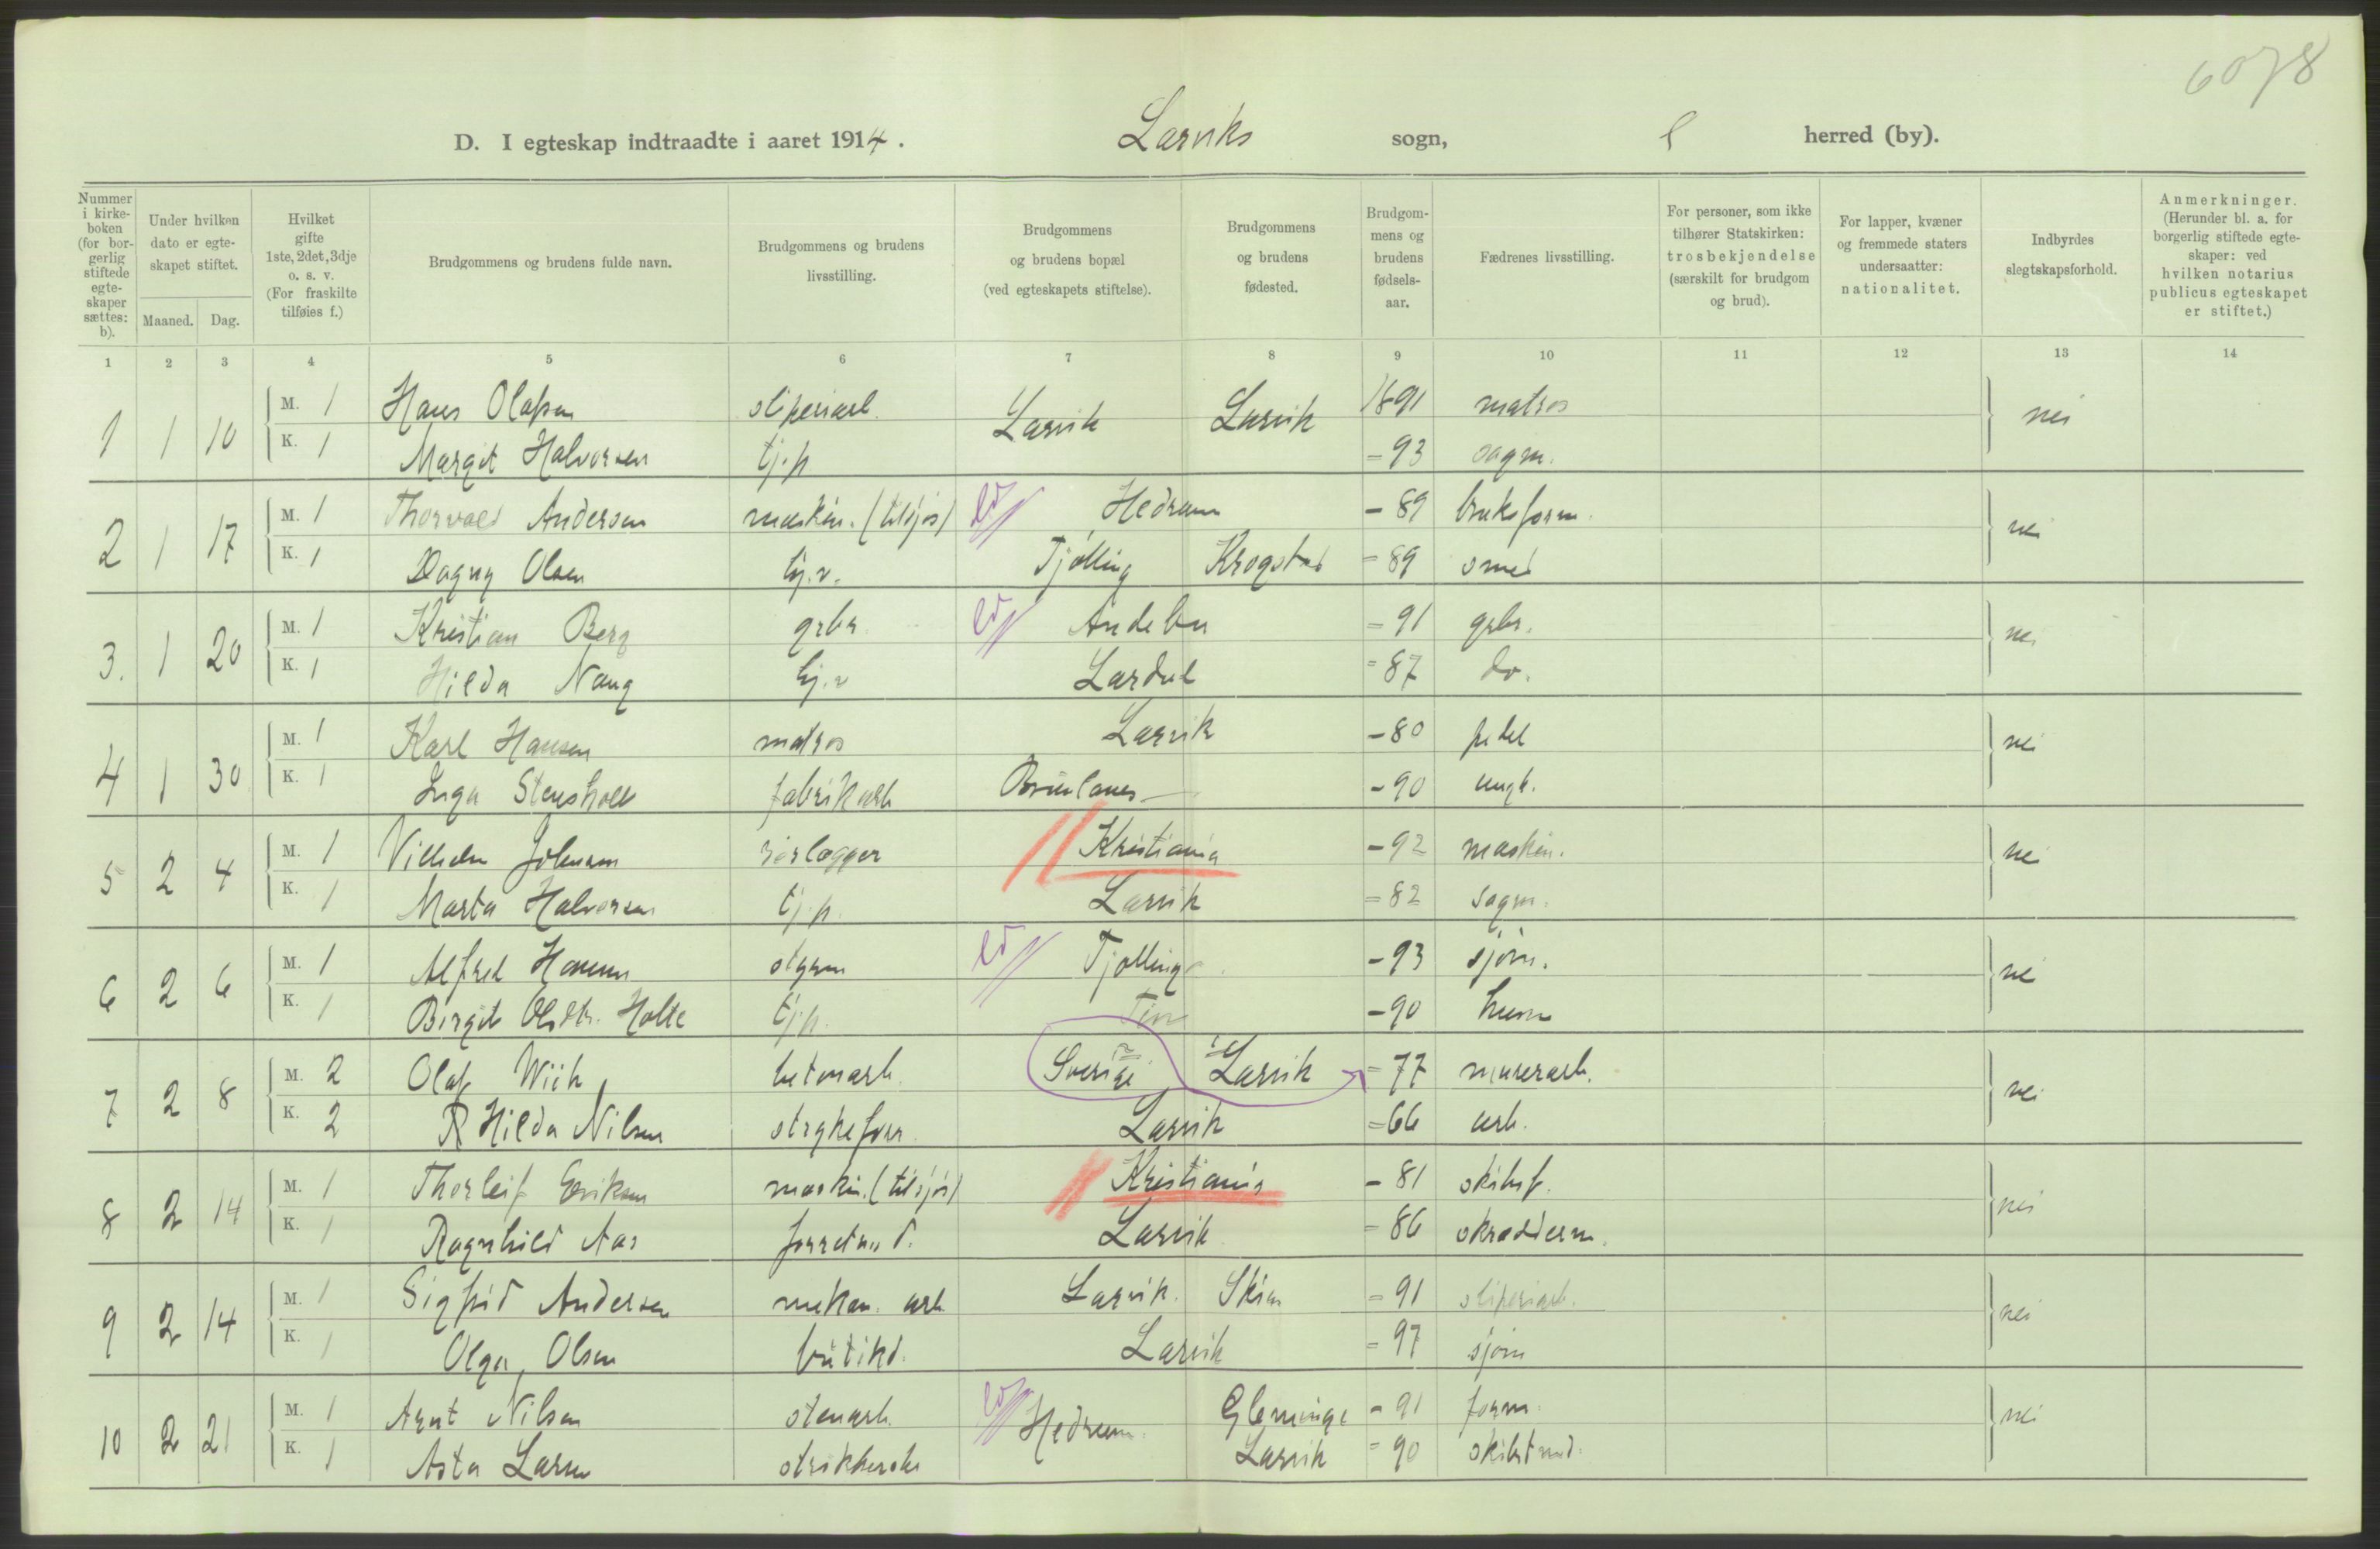 6078
D. I egteskap indtraadte i aaret 1914. Larviks sogn, herred (by).
Nummer i kirkeboken (for borgerlig stiftede egteskaper sættes: b).
Under hvilken dato er egteskapet stiftet.
Maaned. Dag.
Hvilket gifte 1ste, 2det, 3dje o. s. v. (For fraskilte tilføies f.)
Brudgommens og brudens fulde navn.
Brudgommens og brudens livsstilling.
Brudgommens og brudens bopæl (ved egteskapets stiftelse).
Brudgommens og brudens fødested.
Brudgommens og brudens fødselsaar.
Fædrenes livsstilling.
For personer, som ikke tilhører Statskirken: trosbekjendelse (særskilt for brudgom og brud).
For lapper, kvæner og fremmede staters undersaatter: nationalitet.
Indbyrdes slegtskapsforhold.
Anmerkninger. (Herunder bl. a. for borgerlig stiftede egteskaper: ved hvilken notarius publicus egteskapet er stiftet.)
1 2 3 4 5 6 7 8 9 10 11 12 13 14
1 1 10 M. 1 Hans Olafsen sliperiarb. Larvik Larvik 1891 matros nei
K. 1 Margit Halvorsen tj.p - 93 sagm.
2 1 17 M. 1 Thorvald Andersen maskin. (tilsjøs) Hedrum - 89 bruksform. nei
K. 1 Dagny Olsen tj.v. Tjølling Krogstad - 89 smed
3. 1 20 M. 1 Kristian Berg grbr. Andebu - 91 grbr. nei
K. 1 Hilda Naug tj.v Lardal - 87 do.
4 1 30 M. 1 Karl Hansen matros Larvik - 80 pedel nei
K. 1 Inga Stensholt fabrikarb Brunlanes - 90 ungk.
5 2 4 M. 1 Vilhelm Johansen rørlægger Kristiania - 92 maskin. nei
K. 1 Marta Halvorsen tj.p. Larvik - 82 sagm.
6 2 6 M. 1 Alfred Hansen styrm Tjølling - 93 sjøm. nei
K. 1 Birgit Olsdtr. Holte tj.p. Tinn - 90 husm
7 2 8 M. 2 Olaf Wiik betonarb. Sverige Larvik - 77 murerarb. nei
K. 2 R Hilda Nilsen strykeforr. Larvik - 66 arb.
8 2 14 M. 1 Thorleif Eriksen maskin. (tilsjøs) Kristiania - 81 skibsf. nei
K. 1 Ragnhild Aas forretn.d. Larvik - 86 skrædderm.
9 2 14 M. 1 Sigfrid Andersen mekan. arb Larvik. Skien - 91 sliperiarb. nei
K. 1 Olga Olsen butikd. Larvik - 97 sjøm
10 2 21 M. 1 Arnt Nilsen stenarb. Hedrum. Glemminge - 91 form. nei
K. 1 Asta Larsen strikkerske Larvik - 90 skibstmd.